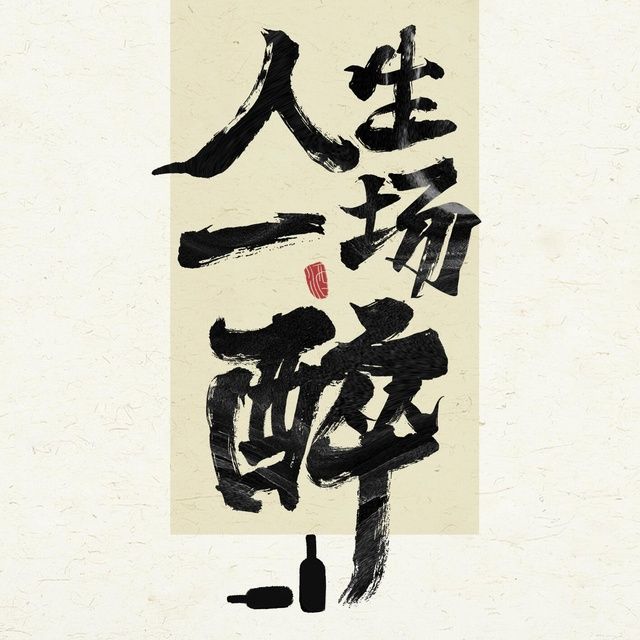 人生
一场
醉